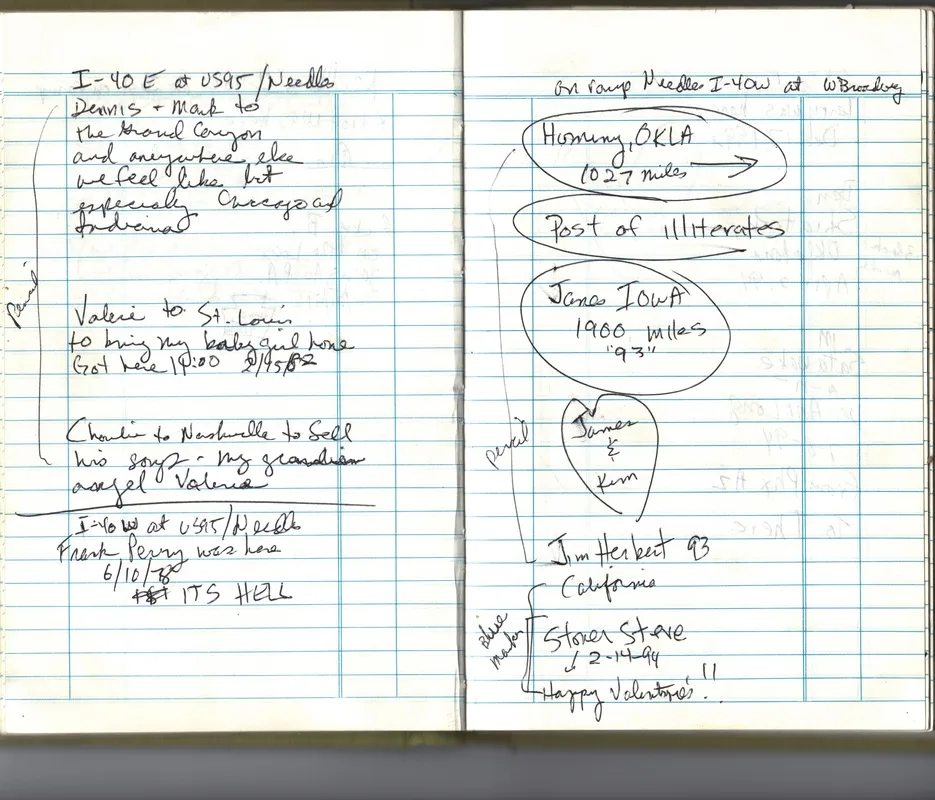 I-40 E at US95/Needles
Dennis + Mark to
the Grand Canyon
and anywhere else
we feel like but
especially Chicago and
Indiana
pencil
Valerie to St. Louis
to bring my baby girl home
Got here 14:00 2/15/82
Charlie to Nashville to Sell
his songs - my guardian
angel Valerie
I-40 W at US95/Needles
Frank Perry was here
6/10/78
ITS HELL
on ramp Needles I-40W at W Broadway
Hominy, OKLA
1027 miles
Post of illiterates
James IOWA
1900 miles
"93"
James
&
Kim
pencil
Jim Herbert 93
California
blue
marker
Stoner Steve
2-14-94
Happy Valentine's!!